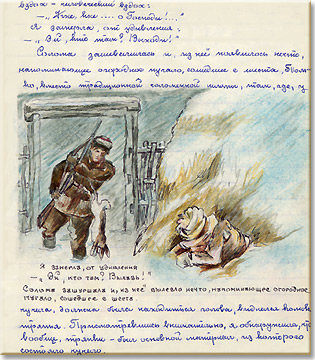 вздох - человеческий вздох:
— ... о Господи!..."
Я замерла, от удивления.
— "Эй, кто там? Выходи!"
Солома зашевелилась и, из неё появилось нечто,
напоминающее огородное пугало, сошедшее с шеста. Толь-
ко, вместо традиционной соломенной шляпы, там, где, у
Я замерла, от удивления
— "Эй, кто там? Вылазь!"
Солома зашуршала и, из неё вылезло нечто, напоминающее огородное
пугало, сошедшее с шеста.
пугала, должна была находиться голова, виднелся
тряпья. Присмотревшись внимательно, я обнаружила,
вообще, тряпьё - был основной материал, из которого
состояло пугало.